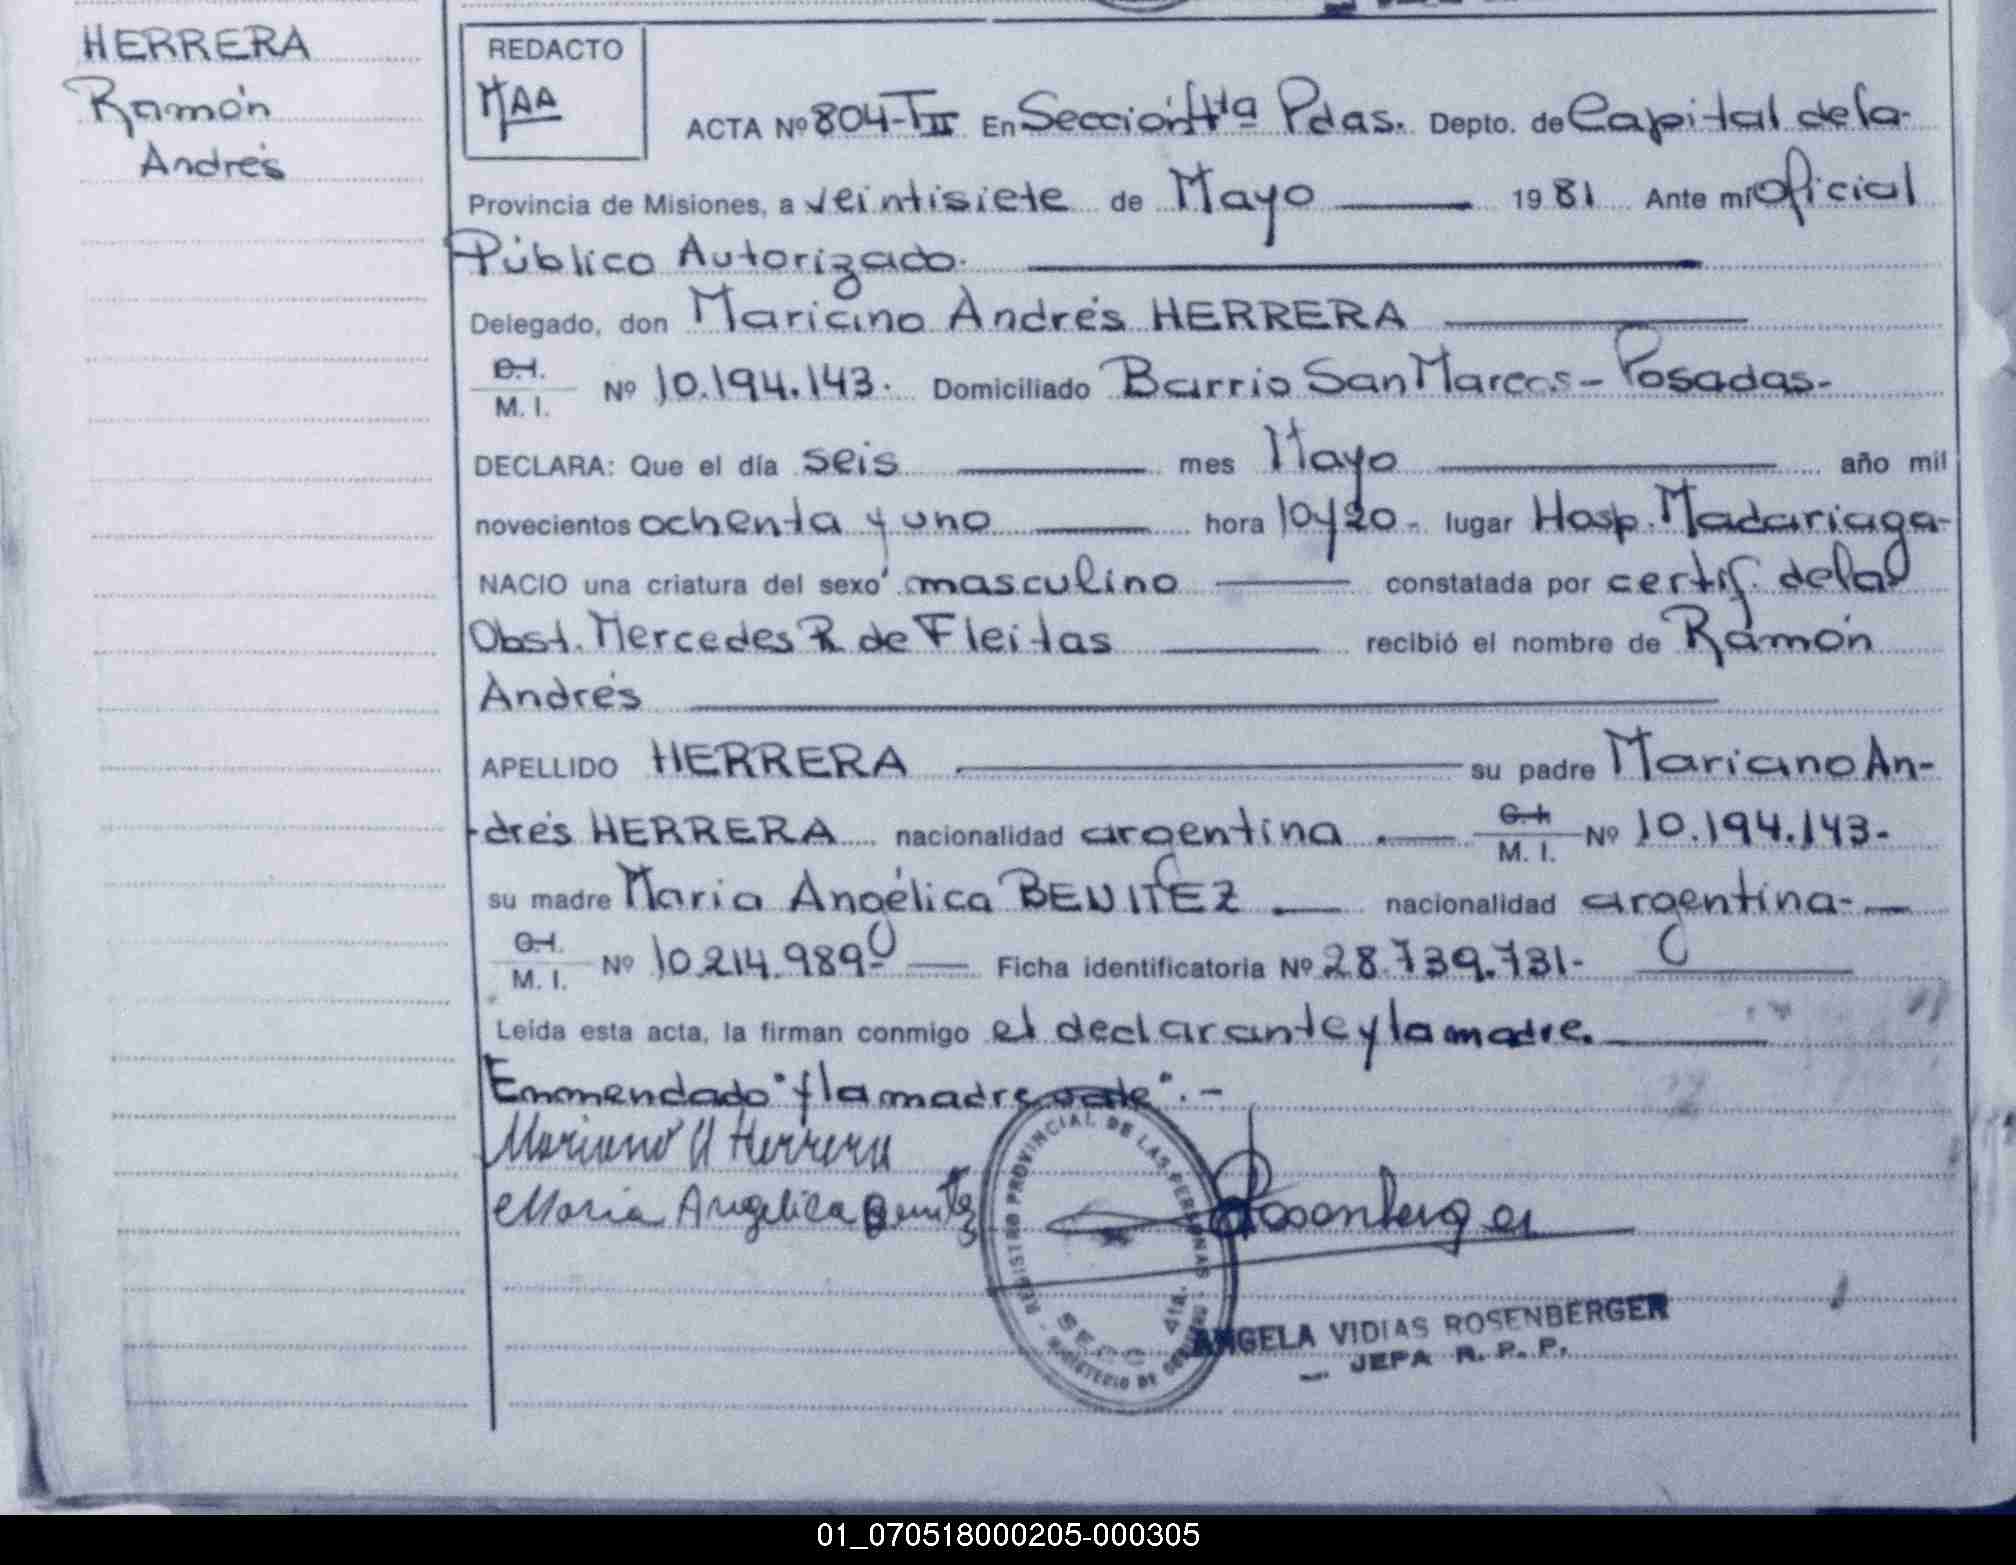 HERRERA
Ramón
Andrés
REDACTO
MAA
ACTA Nº 804-TII En Sección 4ta Pdas. Depto. de Capital de la
Provincia de Misiones, a veintisiete de Mayo 1981 Ante mí Oficial
Público Autorizado.
Delegado, don Mariano Andrés HERRERA
C.I. M. I. Nº 10.194.143. Domiciliado Barrio San Marcos - Posadas.
DECLARA: Que el día seis mes Mayo año mil
novecientos ochenta y uno hora 10 y 20 - lugar Hosp. Madariaga-
NACIO una criatura del sexo masculino constatada por certif. de la
Obst. Mercedes R. de Fleitas recibió el nombre de Ramón
Andrés
APELLIDO HERRERA su padre Mariano An-
drés HERRERA nacionalidad argentina C.I. M. I. Nº 10.194.143-
su madre Maria Angélica BENITEZ nacionalidad argentina-
C.I. M. I. Nº 10.214.989- Ficha identificatoria Nº 28.739.731-
Leída esta acta, la firman conmigo el declarante y la madre.
Enmendado "y la madre vale". -
Mariano A Herrera
Maria Angelica Benitez
Rosenberger
REGISTRO PROVINCIAL DE LAS PERSONAS - MINISTERIO DE GOBIERNO -
SECC. 4ta.
ANGELA VIDIAS ROSENBERGER
JEFA R. P. P.
01_070518000205-000305